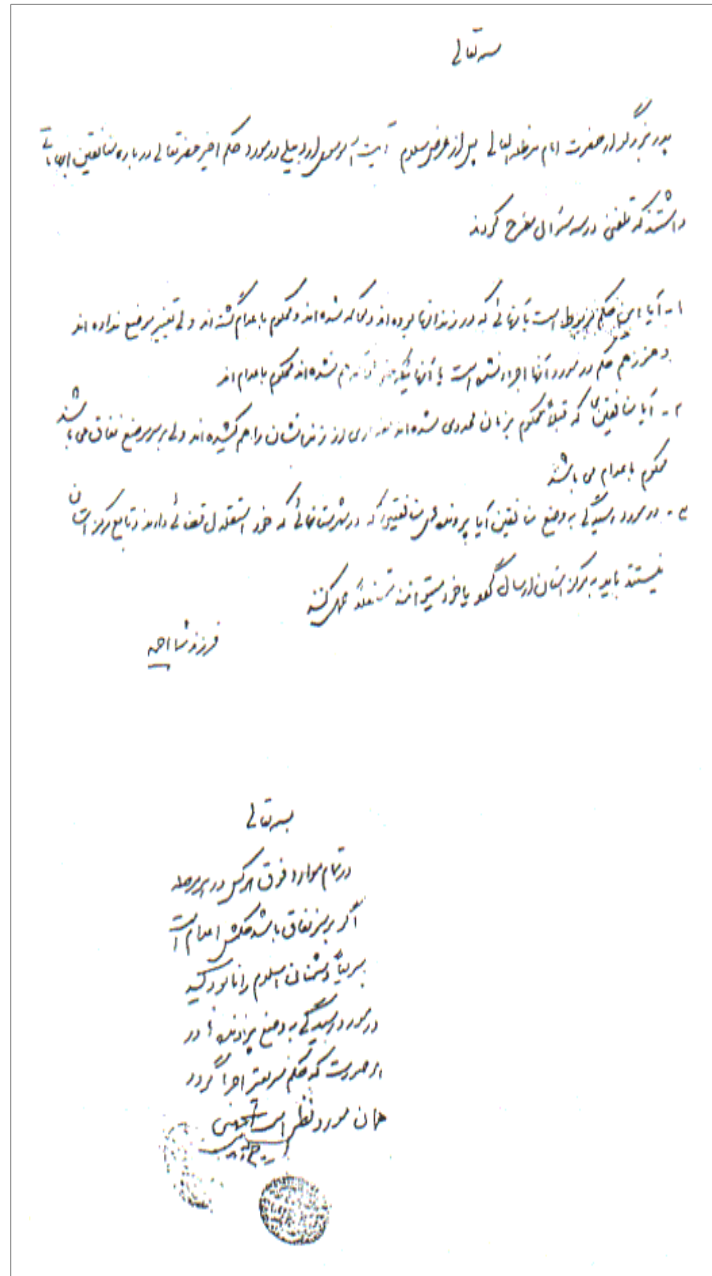 بسمه تعالی
پدر بزرگوار حضرت امام مدظله العالی پس از عرض سلام آیت ا... موسوی اردبیلی در مورد حکم اخیر حضرتعالی درباره منافقین ابهاماتی
داشتند که تلفنی در سه سئوال مطرح کردند
۱ - آیا این حکم مربوط است به آنهائی که در زندانها بوده اند و محاکمه شده اند و محکوم به اعدام گشته اند ولی تغییر موضع نداده اند
و هنوز هم حکم در مورد آنها اجراء نشده است یا آنهائیکه حتی محاکمه هم نشده اند محکوم به اعدام اند
۲ - آیا منافقینی که قبلاً محکوم به زندان محدودی شده اند مقداری از زندانشان را هم کشیده اند ولی بر سر موضع نفاق می باشند
محکوم به اعدام می باشند
۳ - در مورد رسیدگی به وضع منافقین آیا پرونده های منافقینی که در شهرستانهائی که خود استقلال قضائی دارند و تابع مرکز استان
نیستند باید به مرکز استان ارسال گردد یا خود میتوانند مستقلاً عمل کنند
فرزند شما احمد
بسمه تعالی
در تمام موارد فوق هر کس در هر مرحله
اگر بر سر نفاق باشد حکمش اعدام است
سریعاً دشمنان اسلام را نابود کنید
در مورد رسیدگی به وضع پرونده ها در
هر صورت که حکم سریعتر اجرا گردد
همان مورد نظر است
روح الله الموسوی الخمینی